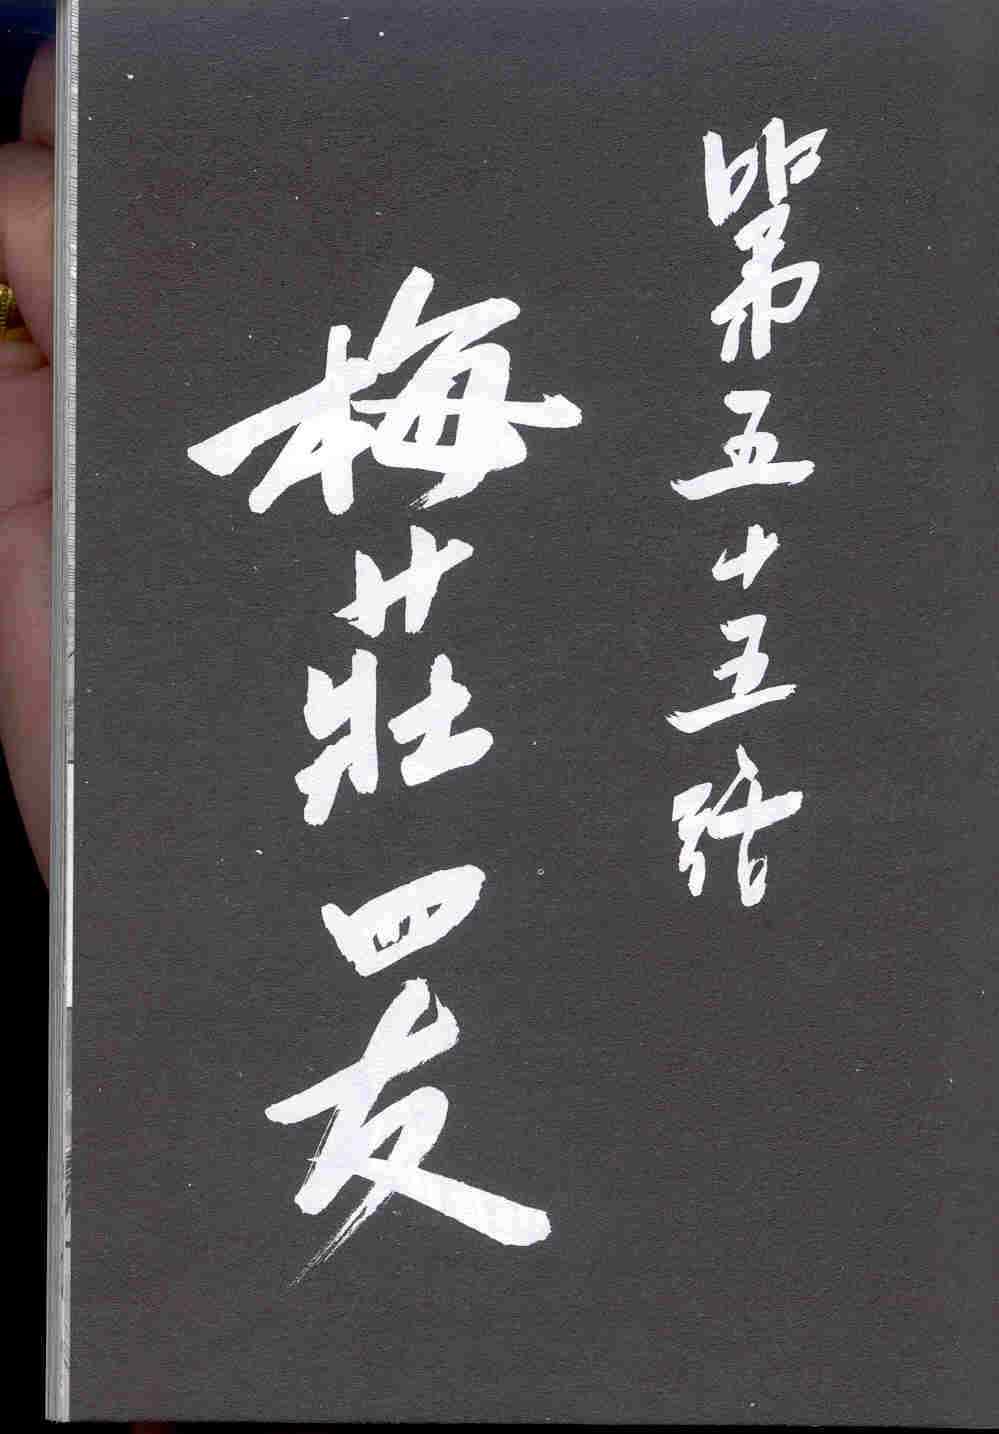 第五十五話
梅莊四友